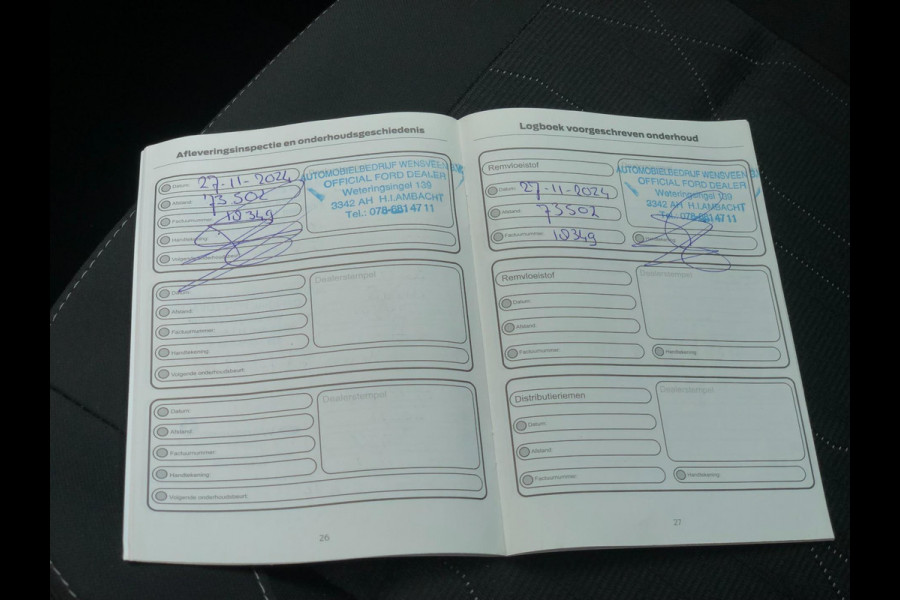 Afleveringsinspectie en onderhoudsgeschiedenis
Datum: 27-11-2024
Afstand: 73502
Factuurnummer: 10349
Handtekening:
AUTOMOBIELBEDRIJF WENSVEEN
OFFICIAL FORD DEALER
Weteringsingel 139
3342 AH H.I.AMBACHT
Tel.: 078-681 47 11
Dealerstempel
Afstand:
Factuurnummer:
Handtekening:
Volgende onderhoudsbeurt:
Dealerstempel
Datum:
Afstand:
Factuurnummer:
Handtekening:
Volgende onderhoudsbeurt:
26
Logboek voorgeschreven onderhoud
Remvloeistof
Datum: 27-11-2024
Afstand: 73502
Factuurnummer: 10349
AUTOMOBIELBEDRIJF WENSVEEN
OFFICIAL FORD DEALER
Weteringsingel 139
3342 AH H.I.AMBACHT
Tel.: 078-681 47 11
Remvloeistof
Dealerstempel
Datum:
Afstand:
Factuurnummer:
Handtekening:
Distributieriemen
Dealerstempel
Datum:
Afstand:
Factuurnummer:
Handtekening:
27